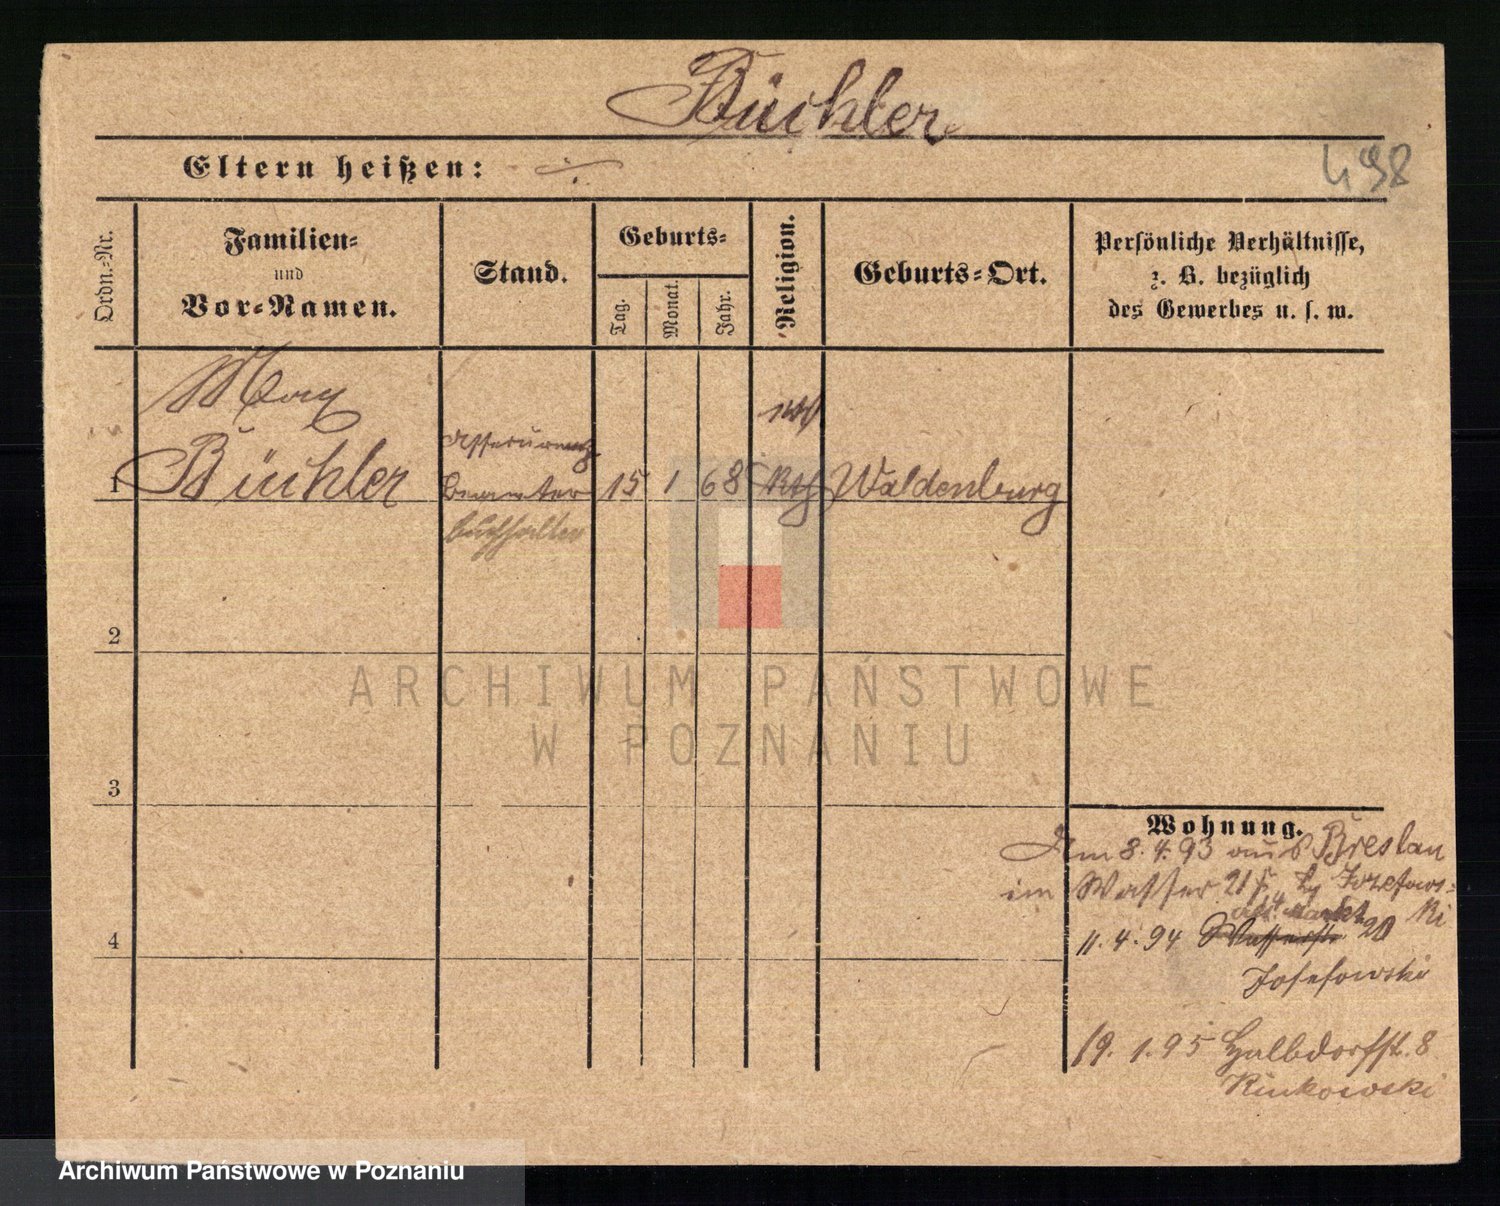 Büchler
Eltern heißen: ÷
498
Ordn.=Nr.
Familien=
und
Vor=Namen.
Stand.
Geburts=
Tag.
Monat.
Jahr.
Religion.
Geburts=Ort.
Persönliche Verhältnisse,
z. B. bezüglich
des Gewerbes u. s. w.
Max
1 Büchler
Assecuranz
beamter
Buchhalter
15 1 68
Kth
Waldenburg
2
3
4
Wohnung.
Am 8.4.93 aus Breslau
im Wasser 21 Jozefows=
ki
Alt. Markt
11.4.94 Wasserstr 20
Josefowski
19.1.95 Halbdorfstr. 8
Rinkowski
ARCHIWUM PAŃSTWOWE
W POZNANIU
Archiwum Państwowe w Poznaniu